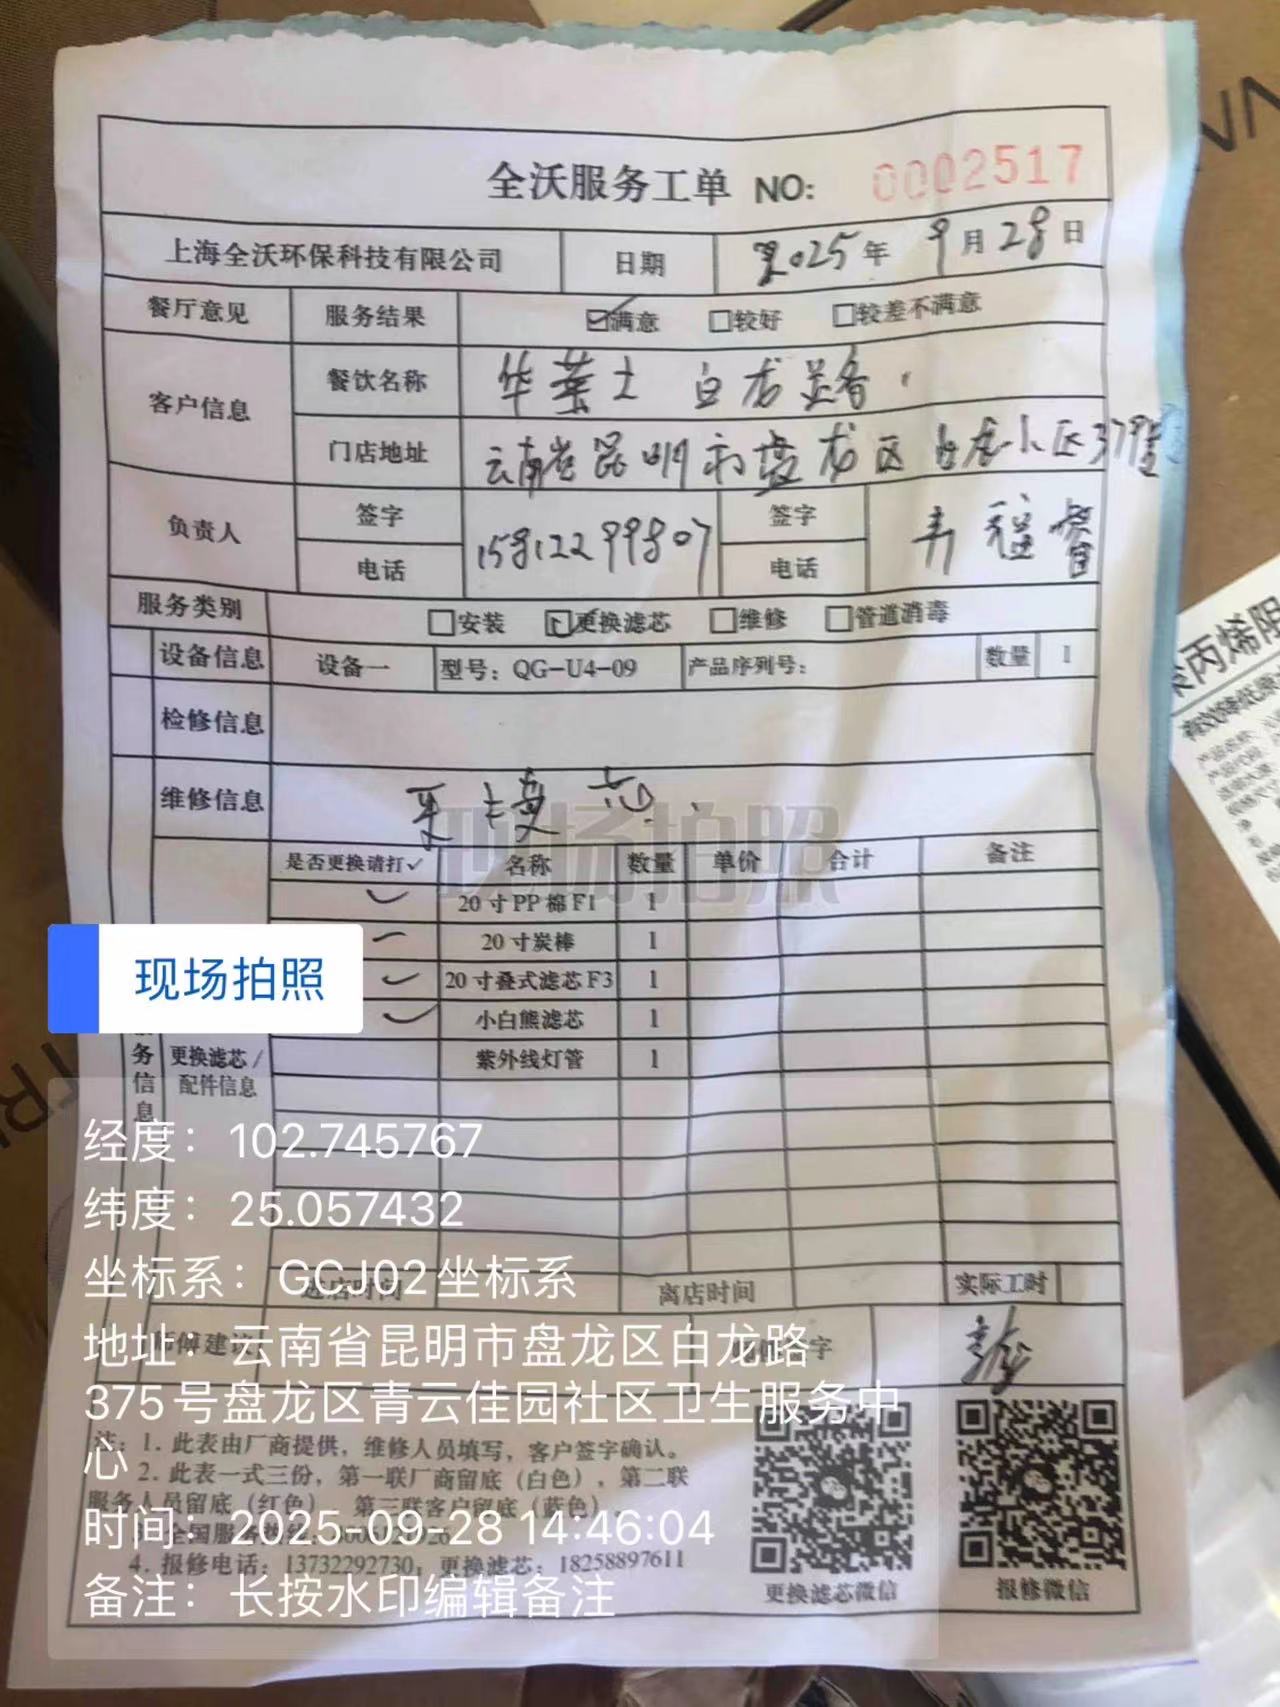 全沃服务工单 NO: 0002517
上海全沃环保科技有限公司 日期 2025年 9月28日
餐厅意见 服务结果 ☑满意 □较好 □较差不满意
客户信息 餐饮名称 华莱士 白龙路
门店地址 云南省昆明市盘龙区白龙小区379号
负责人 签字 15812299807 签字
电话 电话
服务类别 □安装 ☑更换滤芯 □维修 □管道消毒
设备信息 设备一 型号: QG-U4-09 产品序列号: 数量 1
检修信息
维修信息 更换芯
现场拍照
是否更换请打✓ 名称 数量 单价 合计 备注
✓ 20寸PP棉F1 1
✓ 20寸炭棒 1
✓ 20寸叠式滤芯F3 1
✓ 小白熊滤芯 1
紫外线灯管 1
现场拍照
务信息 更换滤芯/
配件信息
经度: 102.745767
纬度: 25.057432
坐标系: GCJ02坐标系
进店时间 离店时间 实际工时
地址: 云南省昆明市盘龙区白龙路
375号盘龙区青云佳园社区卫生服务中
心
师傅建议 字
注: 1. 此表由厂商提供, 维修人员填写, 客户签字确认。
2. 此表一式三份, 第一联厂商留底 (白色), 第二联
服务人员留底 (红色), 第三联客户留底 (蓝色)。
时间: 2025-09-28 14:46:04
4. 报修电话: 13732292730, 更换滤芯: 18258897611
备注: 长按水印编辑备注
更换滤芯微信 报修微信
聚丙烯阻